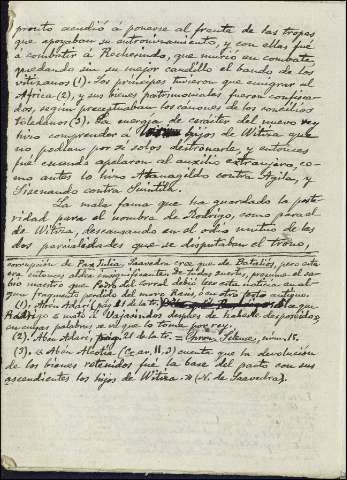 pronto acudió á ponerse al frente de las tropas
que apoyaban su entronizamiento, y con ellas fué
á combatir á Rechesindo, que murió en combate,
quedando sin su mejor caudillo el bando de los
vitizanos (1). Los príncipes tuvieron que emigrar al
Africa (2), y sus bienes patrimoniales fueron confisca-
dos, según preceptuaban los cánones de los concilios
toledanos (3). La energía de carácter del nuevo rey
hizo comprender á los hijos de Witiza que
no podían por sí solos destronarle, y entonces
fué cuando apelaron al auxilio extranjero, co-
mo antes lo hizo Atanagildo contra Agila, y
Sisenando contra Suintila.
La mala fama que ha guardado la poste-
ridad para el nombre de Rodrigo, como para el
de Witiza, descansando en el odio mutuo de las
dos parcialidades que se disputaban el trono,
corrupción de Pax Julia, Saavedra cree que de Batalios, pero esta
era entonces aldea insignificante. De todas suertes, presume el sa-
bio maestro que Pedro del Corral debió leer esta noticia en al-
gun fragmento perdido del moro Rasis, ú en otro texto antiguo.
(1). Abén Adari (pág 11 de la tr.) con
Rodrigo e mató á después de haberle desposeído,
en cuyas palabras se vé que lo toma por rey.
(2). Abén Adari, pág. 21 de la tr. = Chron. Silense, núm. 15.
(3). « Abén Alcotia (Cr. ar. II, 3) cuenta que la devolución
de los bienes retenidos fué la base del pacto con sus
ascendientes los hijos de Witiza.» (N. de Saavedra).